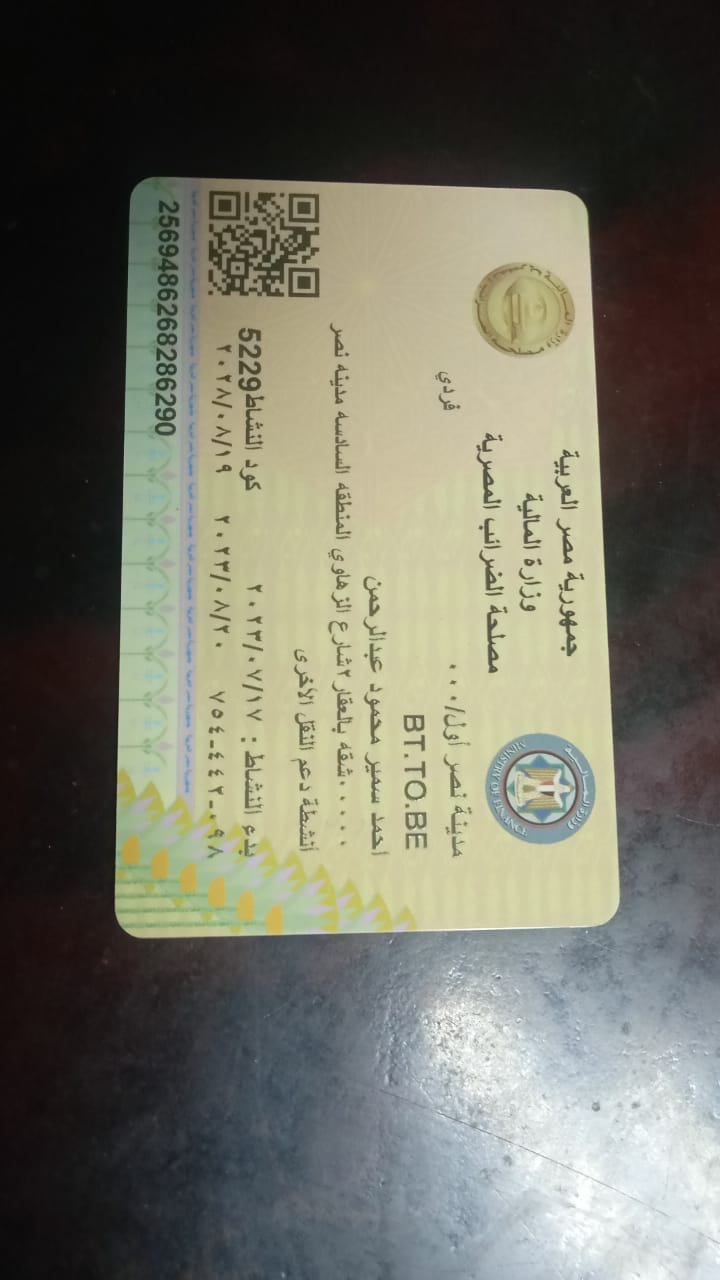 جمهورية مصر العربية
وزارة المالية
مصلحة الضرائب المصرية
وزارة المالية
MINISTRY OF FINANCE
مدينة نصر أول/٠٠٠
فردي
BT.TO.BE
احمد سمير محمود عبدالرحمن
٠٠٠٠٠شقه بالعقار ٢شارع الزهاوي المنطقه السادسه مدينه نصر
أنشطة دعم النقل الأخرى
بدء النشاط : ٢٠٢٣/٠٧/١٧ كود النشاط5229
٧٥٤-٤٤٢-٠٩٨ ٢٠٢٣/٠٨/٢٠ ٢٠٢٨/٠٨/١٩
2569486268286290